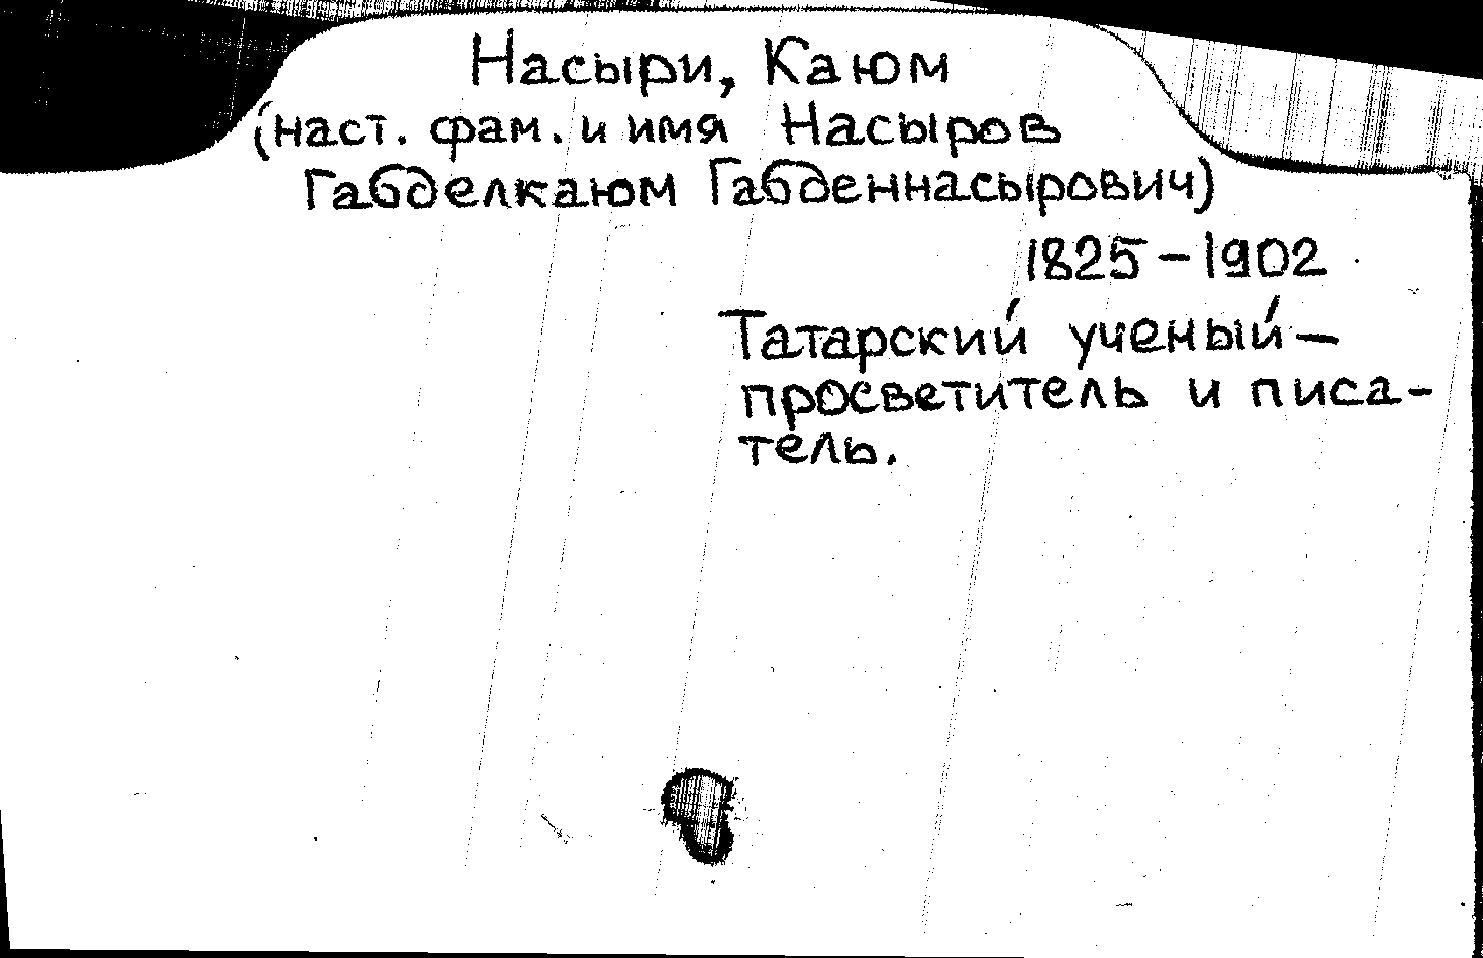 Насыри, Каюм
(наст. фам. и имя Насыров
Габделкаюм Габденнасырович)
1825-1902
Татарский ученый-
просветитель и писа-
тель.